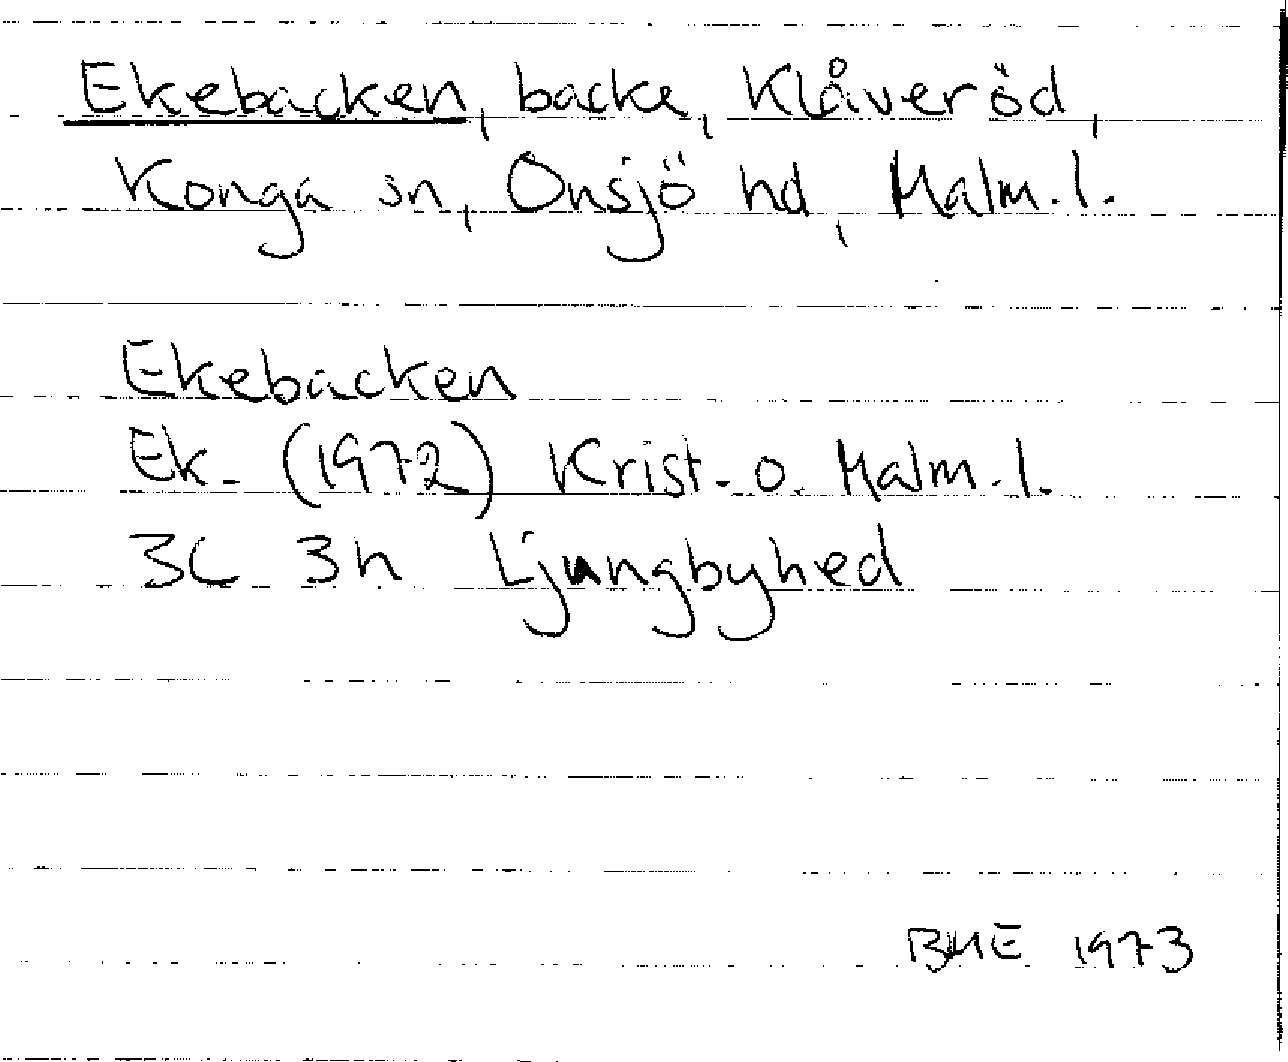 Ekebacken, backe, Klåveröd,
Konga sn, Onsjö hd, Malm.l.
Ekebacken
Ek. (1972) Krist. o. Malm.l.
3C 3h Ljungbyhed
BME 1973